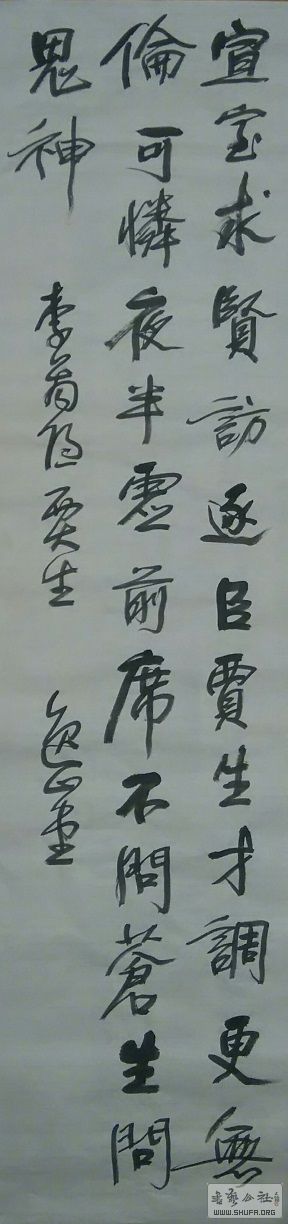 宣室求賢訪逐臣賈生才調更無
倫可憐夜半虛前席不問蒼生問
鬼神
李商隐贾生
逸山書
WWW.SHUFA.ORG